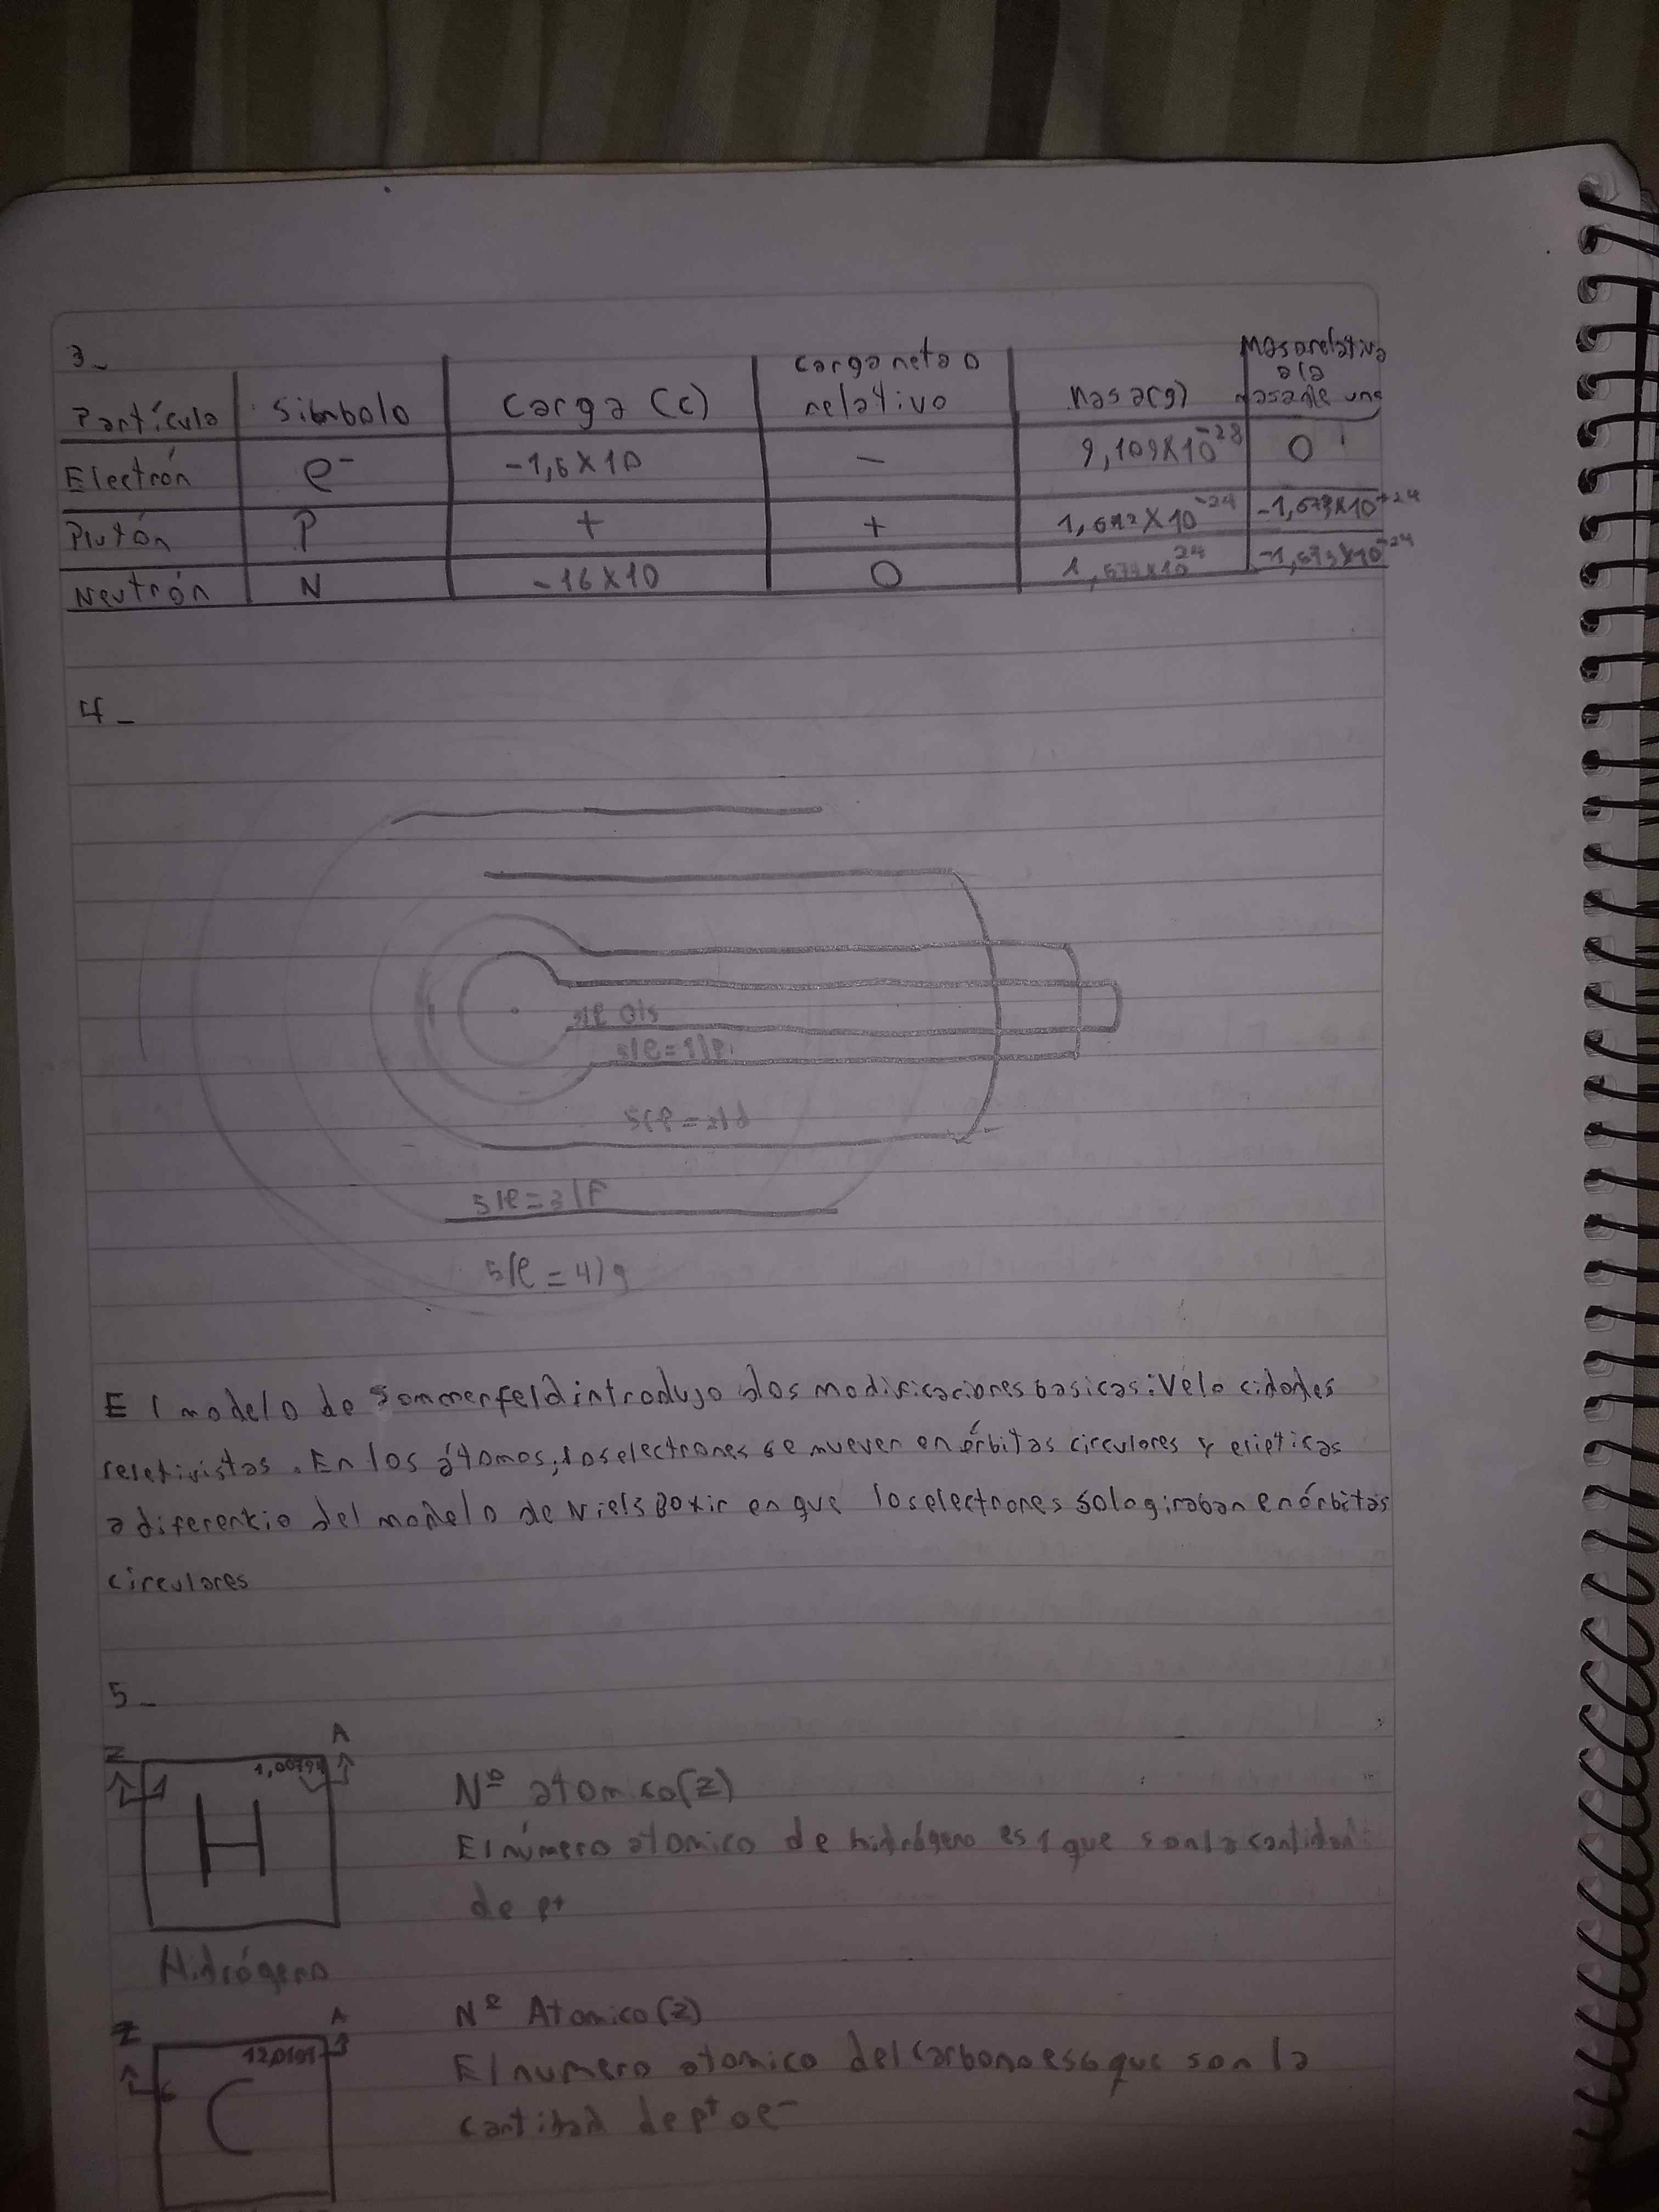 3-
Partícula Simbolo Carga (c) carga neta o relativo Masa(g) Masa relativa a la masa de una
Electrón e⁻ -1,6 X 10 - 9,109X10⁻²⁸ 0
Plutón P + + 1,672 X 10⁻²⁴ -1,673X10⁺²⁴
Neutrón N -16 X 10 0 1,674x10²⁴ -1,673X10⁻²⁴
4-
5/e=1/P
5/e=2/d
5/e=3/F
5/e=4/g
El modelo de Sommerfeld introdujo dos modificaciones basicas: Velocidades
reletivistas. En los átomos, los electrones se mueven en órbitas circulares y elipticas
a diferencio del modelo de Niels Boxir en que los electrones solo giraban en órbitas
circulares
5-
Z A
1 1,00794
H
Nº atomico(Z)
El número atomico de hidrógeno es 1 que son la cantidad
de p+
Hidrógeno
Z A
6 12,0107
C
Nº Atomico(Z)
El numero atomico del carbono es 6 que son la
cantidad de p⁺ o e⁻